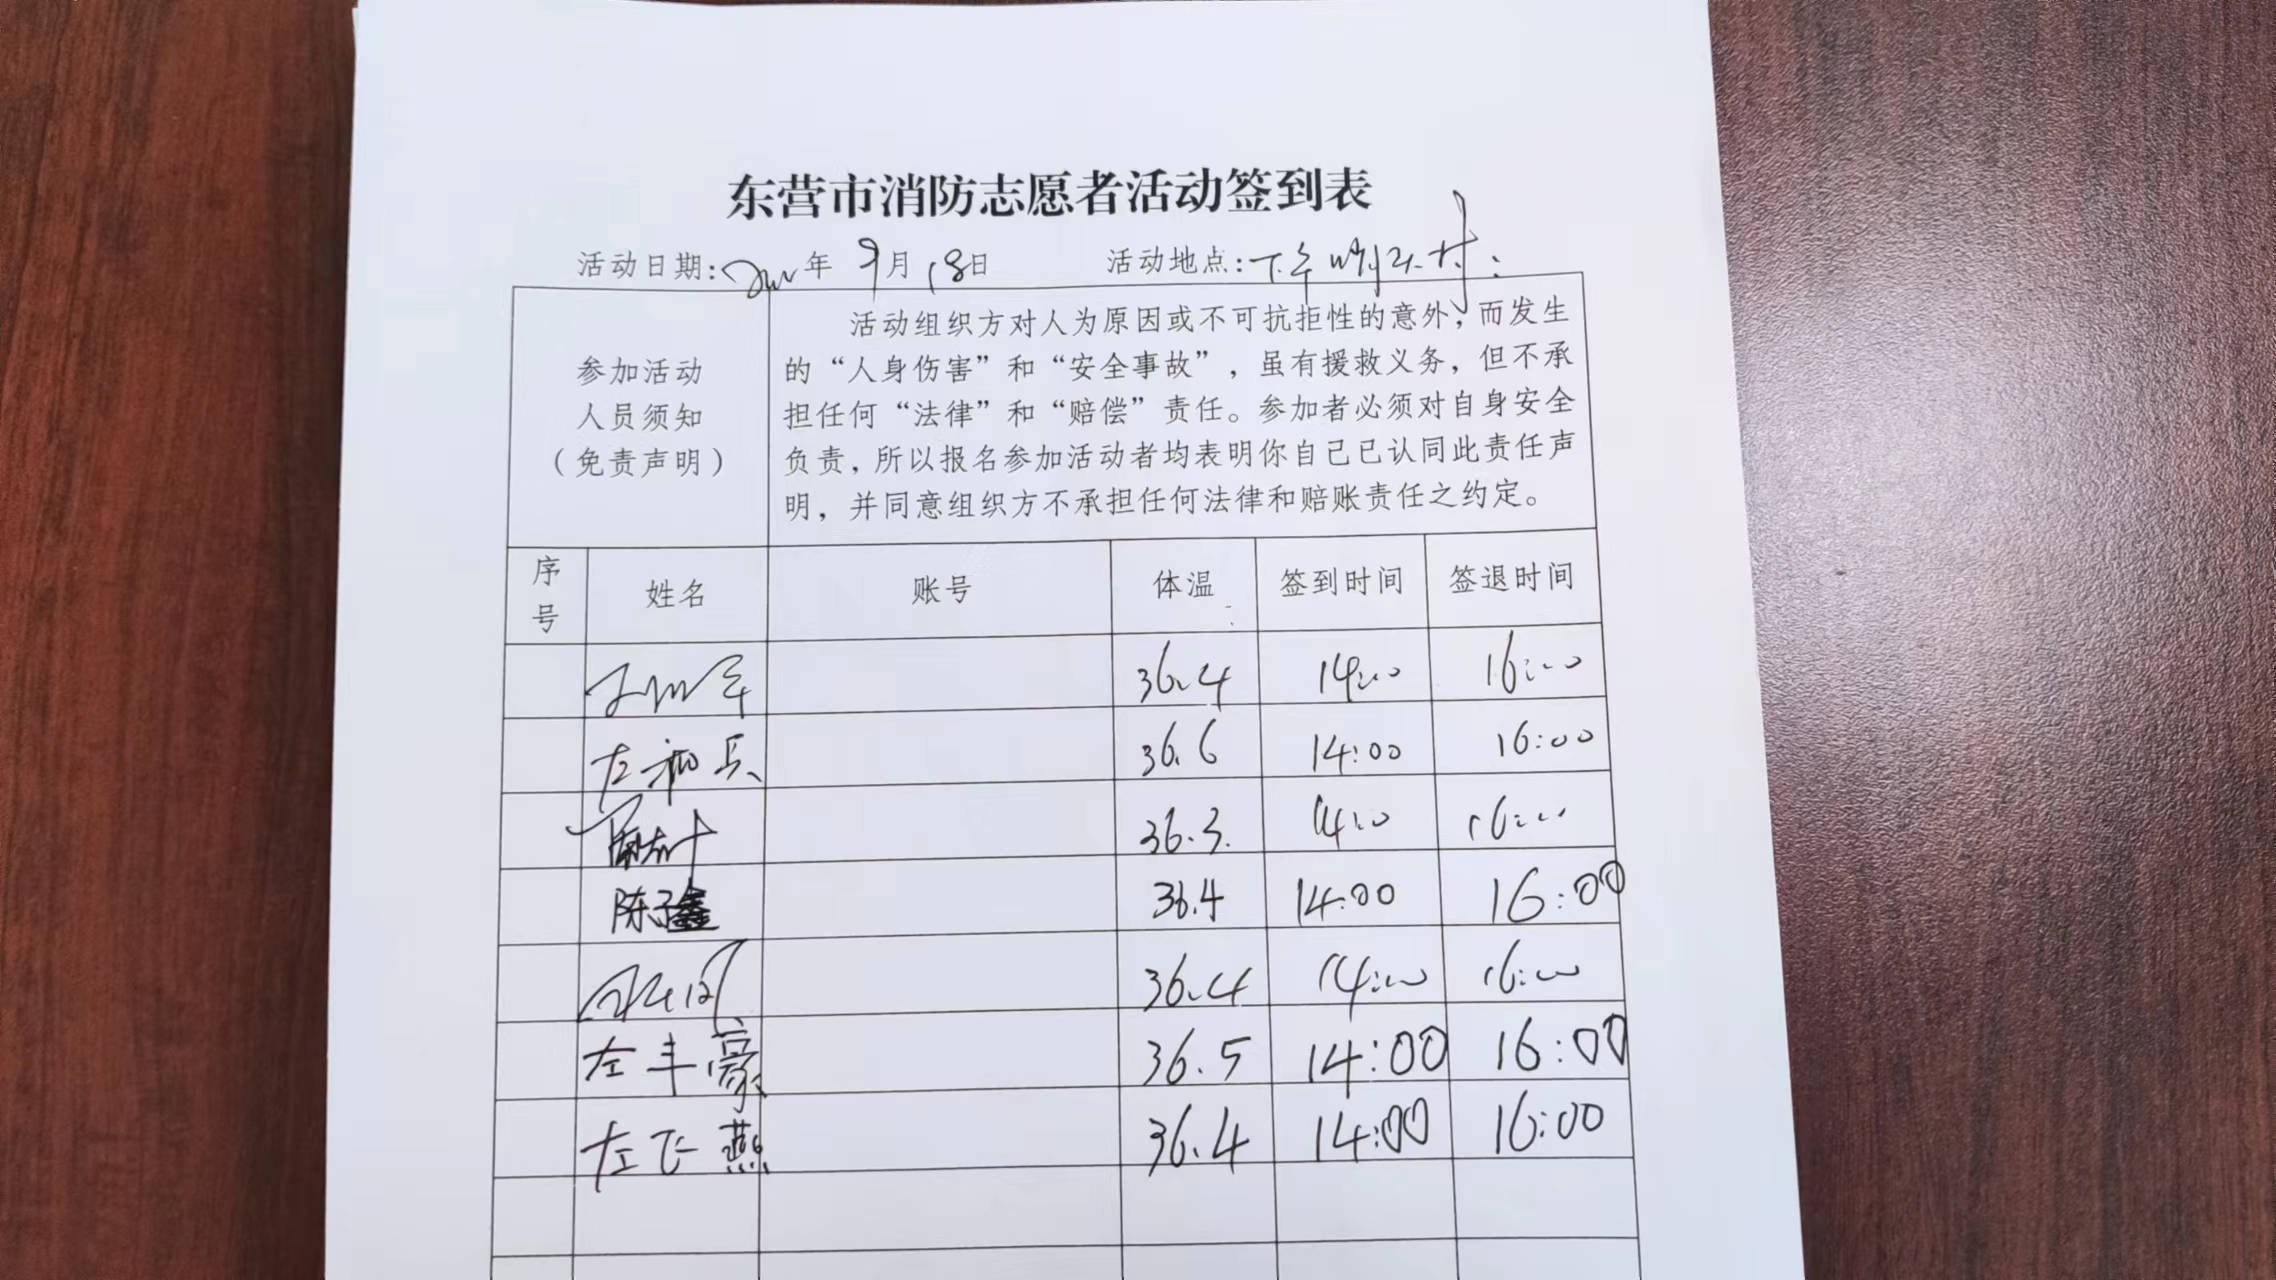 东营市消防志愿者活动签到表
活动日期: 年 9月18日 活动地点:
参加活动
人员须知
(免责声明)
活动组织方对人为原因或不可抗拒性的意外，而发生
的“人身伤害”和“安全事故”，虽有援救义务，但不承
担任何“法律”和“赔偿”责任。参加者必须对自身安全
负责，所以报名参加活动者均表明你自己已认同此责任声
明，并同意组织方不承担任何法律和赔账责任之约定。
序号 姓名 账号 体温 签到时间 签退时间
36.4 14:00 16:00
左 兵 36.6 14:00 16:00
36.3 14:00 16:00
陈子鑫 36.4 14:00 16:00
36.4 14:00 16:00
左丰豪 36.5 14:00 16:00
左飞燕 36.4 14:00 16:00